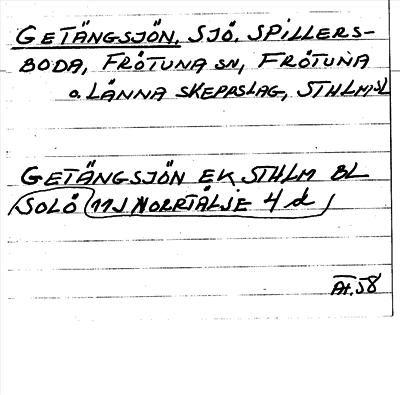 GETÄNGSJÖN, SJÖ, SPILLERS-
BODA, FRÖTUNA SN, FRÖTUNA
o. LÄNNA SKEPPSLAG, STHLMSL
GETÄNGSJÖN EK STHLM BL
SOLÖ 11J NORRTÄLJE 4 d
At. 58